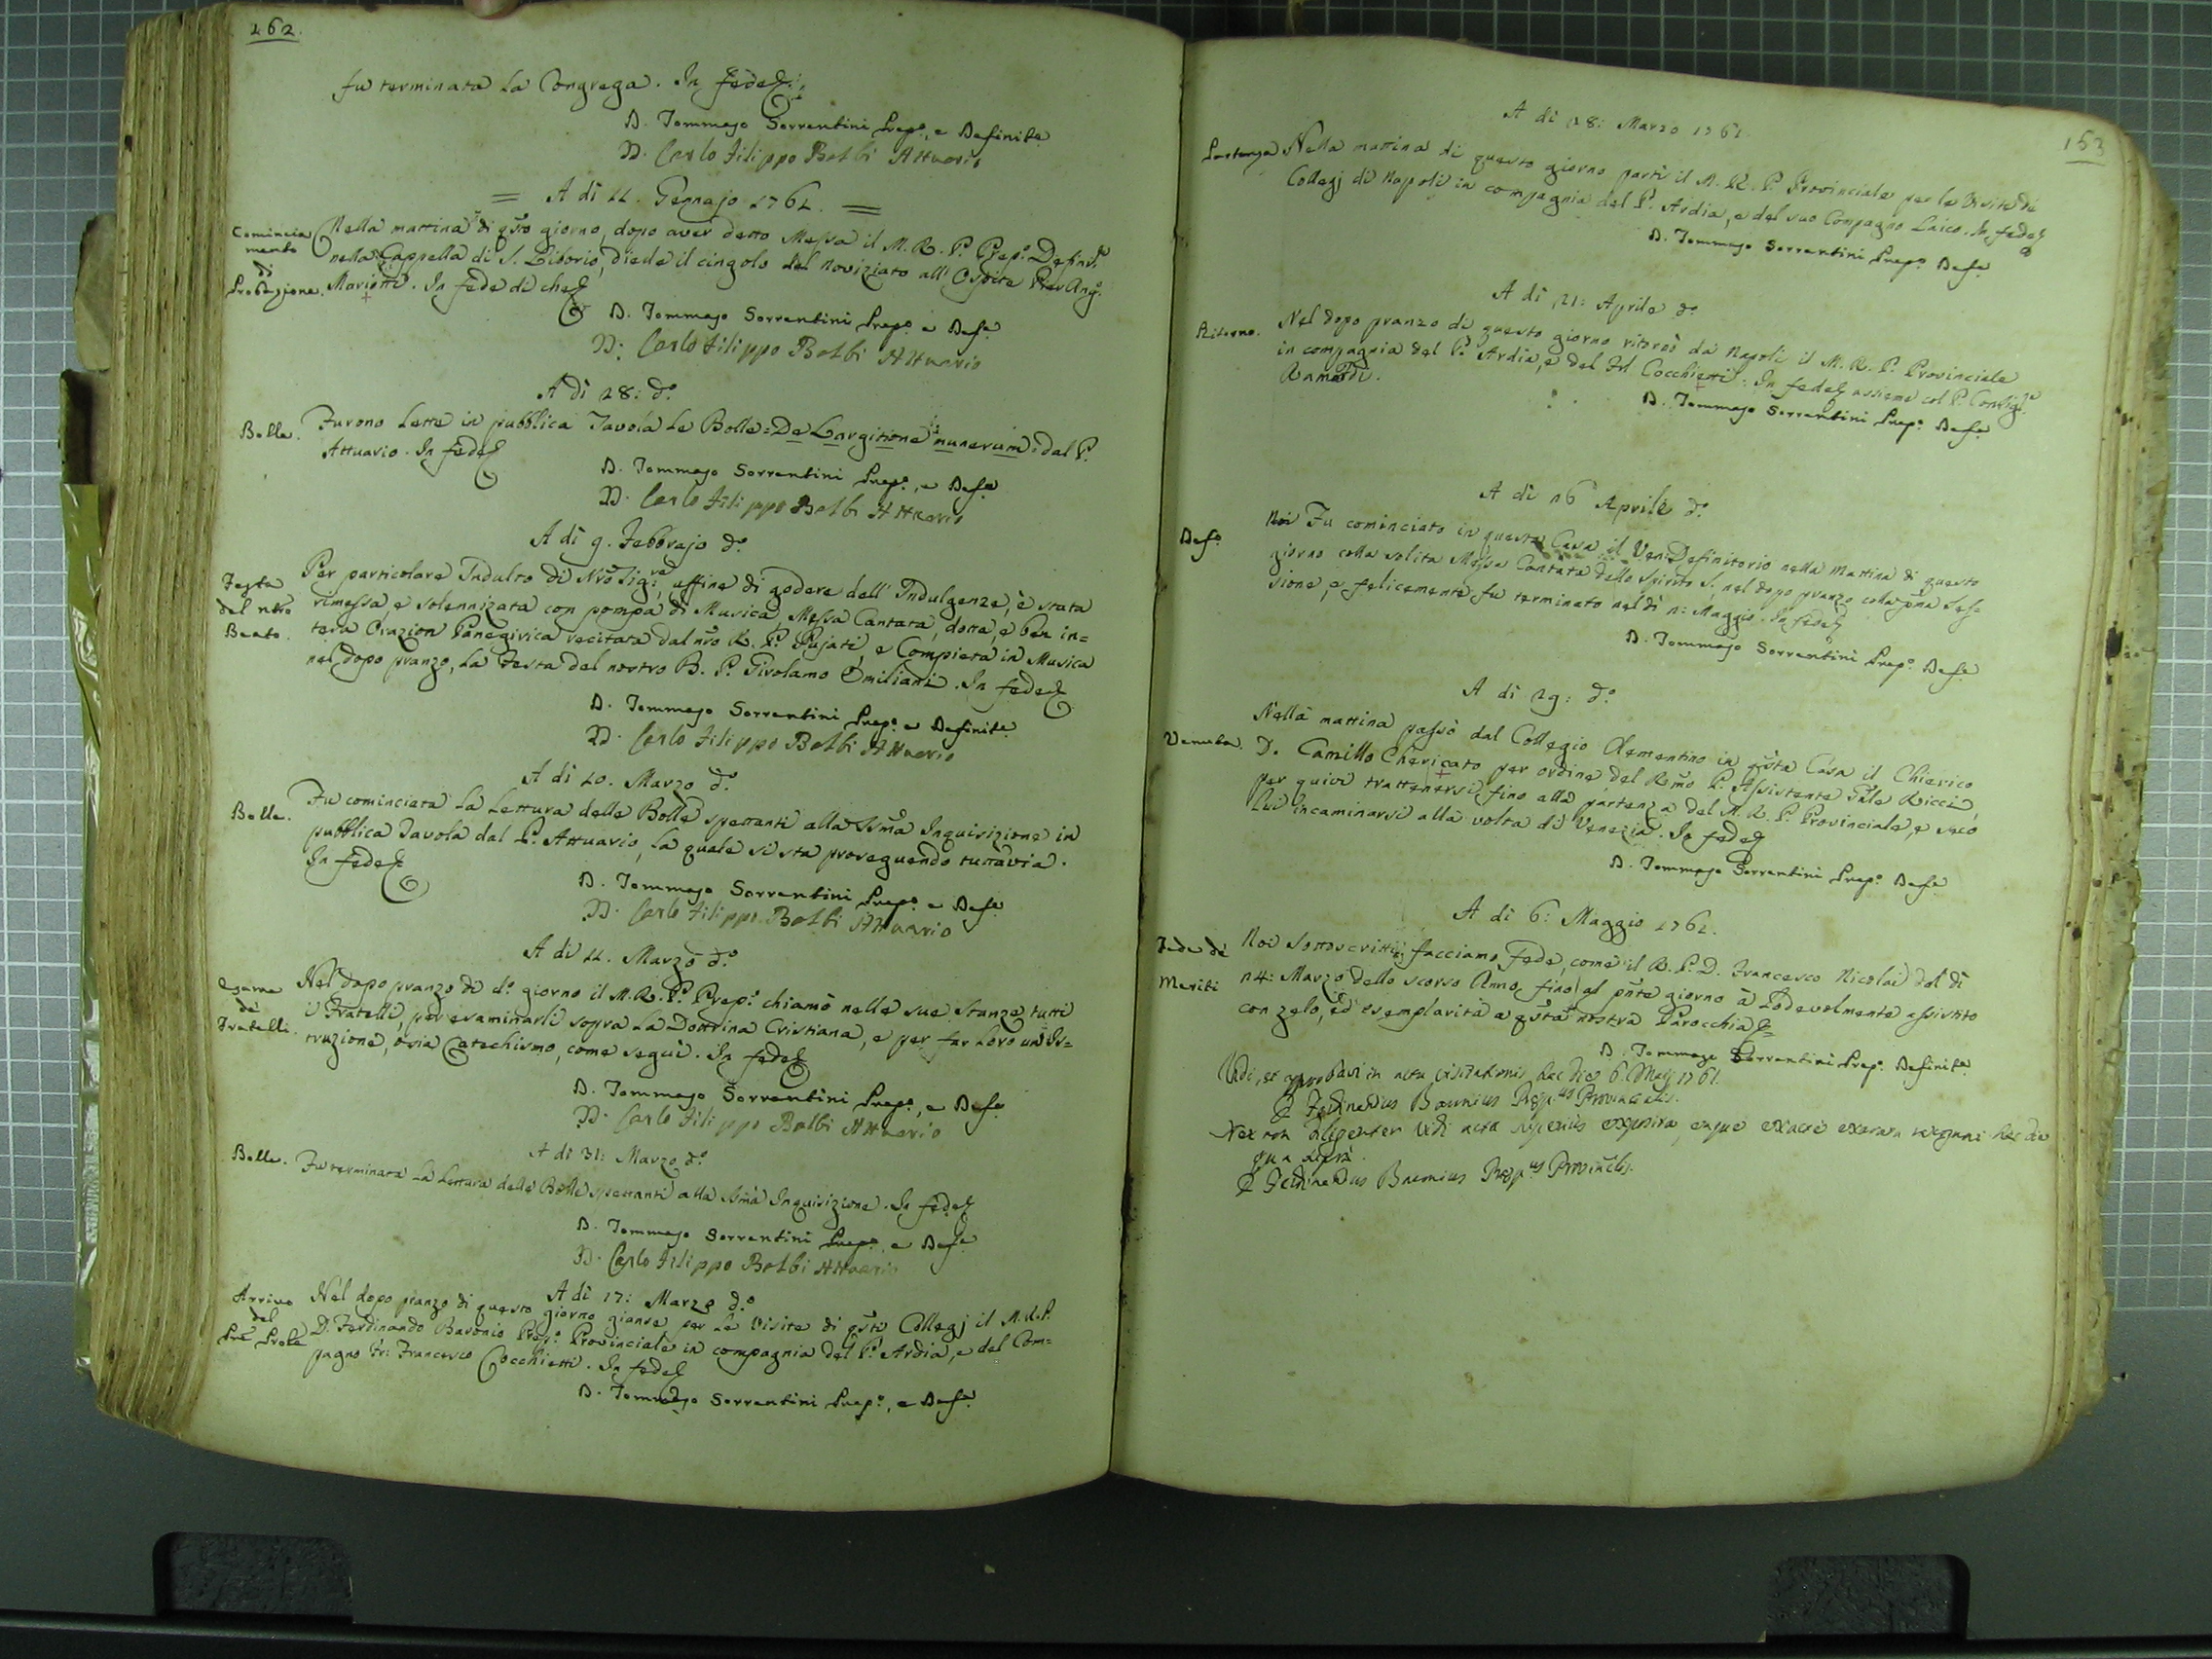 162.
fu terminata la Congrega. In fede &:
D. Tommaso Sorrentini Prepo, e Definite
D. Carlo Filippo Balbi Attuario
= A dì 11. Gennajo 1761. =
Comincia
mento
di
Probazione.
Nella mattina di qsto giorno, dopo aver detto Messa il M. R. P. Prepo: Definre
nella Cappella di S. Liborio, diede il cingolo del Noviziato all' Ospite Frat Ango:
Mariotti. In fede di che &
D. Tommaso Sorrentini Prepo e Defe
D. Carlo Filippo Balbi Attuario
A dì 28: do
Bolle.
Furono lette in pubblica Tavola le Bolle = De Largitione munerum = dal P.
Attuario. In fede &
D. Tommaso Sorrentini Prepo, e Defe
D. Carlo Filippo Balbi Attuario
A dì 9. Febbrajo do
Festa
del nro
Beato.
Per particolare Indulto di Nro Sigre, affine di godere dell' Indulgenze, è stata
rimessa, e solennizata con pompa di Musica, Messa Cantata, dotta, e ben in=
tesa Orazion Panegirica recitata dal nro R. P. Pujati, e Compieta in Musica
nel dopo pranzo, la Festa del nostro B. P. Girolamo Emiliani. In fede &
D. Tommaso Sorrentini Prepo e Definite
D. Carlo Filippo Balbi Attuario
A dì 10. Marzo do
Bolle.
Fu cominciata la lettura delle Bolle spettanti alla Ssma Inquisizione in
pubblica Tavola dal P. Attuario, la quale si sta proseguendo tuttavia.
In fede &
D. Tommaso Sorrentini Prepo e Defe
D. Carlo Filippo Balbi Attuario
A dì 11. Marzo do
Esame
de
Fratelli.
Nel dopo pranzo di do giorno il M. R. P. Prepo chiamò nelle sue stanze tutti
i Fratelli, per esaminarli sopra la Dottrina Cristiana, e per far loro un' Is=
truzione, ò sia Catechismo, come seguì. In fede &
D. Tommaso Sorrentini Prepo, e Defe
D. Carlo Filippo Balbi Attuario
A dì 31: Marzo do
Bolle.
Fu terminata la lettura delle Bolle spettanti alla Ssma Inquisizione. In fede &
D. Tommaso Sorrentini Prepo, e Defe
D. Carlo Filippo Balbi Attuario
A dì 17: Marzo do
Arrivo
del
Pre Prole
Nel dopo pranzo di questo giorno giunse per la visita di qsti Collegj il M. R. P.
D. Ferdinando Baronio Prepo Provinciale in compagnia del P. Ardia, e del Com=
pagno Fr: Francesco Cocchietti. In fede &
D. Tommaso Sorrentini Prepo, e Defe
163
A dì 28: Marzo 1761.
Partenza
Nella mattina di questo giorno partì il M. R. P. Provinciale per la Visita de
Collegj di Napoli in compagnia del P. Ardia, e del suo Compagno Laico. In fede &
D. Tommaso Sorrentini Prepo Defe
A dì 21: Aprile do
Ritorno.
Nel dopo pranzo di questo giorno ritornò da Napoli il M. R. P. Provinciale
in compagnia del P. Ardia, e del Fel Cocchietti: In fede & assieme col P. Consigre
D. Tommaso Sorrentini Prepo Defe
A dì 26 Aprile do
Defo
Noi Fu cominciato in questa Casa il Ven: Definitorio nella mattina di questo
giorno colla solita Messa Cantata dello Spirito S., nel dopo pranzo colla pma Ses=
sione, e felicemente fu terminato nel dì 2: Maggio. In fede &
D. Tommaso Sorrentini Prepo Defe
A dì 29: do
Venuta.
Nella mattina passò dal Collegio Clementino in qsta Casa il Chierico
D. Camillo Chericato per ordine del Rmo P. Assistente Gnle Ricci,
per quivi trattenersi fino alla partenza del M. R. P. Provinciale, e seco
lui incaminarsi alla volta di Venezia. In fede &
D. Tommaso Sorrentini Prepo Defe
A dì 6: Maggio 1761.
Fede di
Meriti
Noi sottoscritti facciamo Fede, come il R. P. D. Francesco Nicolai dal dì
24: Marzo dello scorso Anno, fino al pnte giorno à Lodevolmente assistito
con zelo, ed esemplarità a qsta nostra Parocchia &
D. Tommaso Sorrentini Prepo Definite
Vidi, et approbavi in actu visitationis hac die 6. Maij 1761.
D. Ferdinandus Baronius Prepus Provincialis.
Nec non diligenter vidi acta superius exposita, eaque exacte exarata recognovi hac die
qua supra.
D. Ferdinandus Baronius Prepus Provincialis.